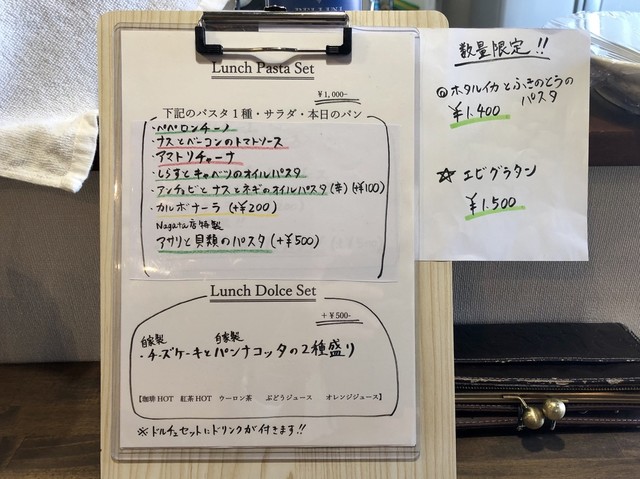 Lunch Pasta Set
¥1,000-
下記のパスタ1種・サラダ・本日のパン
・ペペロンチーノ
・ナスとベーコンのトマトソース
・アマトリチャーナ
・しらすとキャベツのオイルパスタ
・アンチョビとナスとネギのオイルパスタ(辛)(+¥100)
・カルボナーラ (+¥200)
Nagata店特製
アサリと貝類のパスタ(+¥500)
Lunch Dolce Set
+¥500-
自家製 自家製
・チーズケーキとパンナコッタの2種盛り
【珈琲HOT 紅茶HOT ウーロン茶 ぶどうジュース オレンジジュース】
※ドルチェセットにドリンクが付きます!!
数量限定!!
ホタルイカとふきのとうの
パスタ
¥1.400
☆ エビグラタン
¥1.500